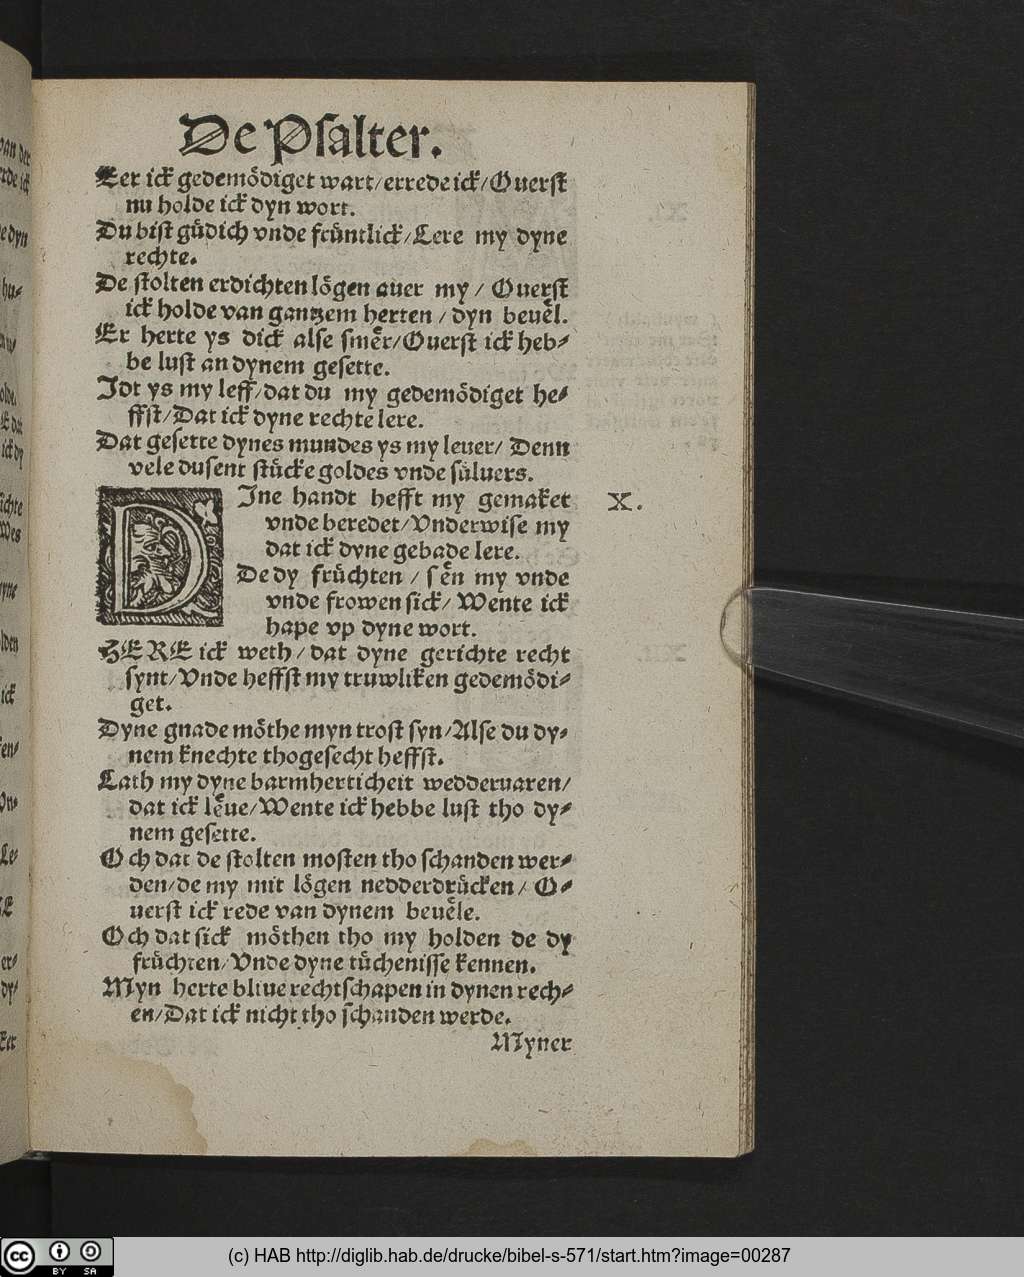 De Psalter.
Eer ick gedemödiget wart/errede ick/Ouerst
nu holde ick dyn wort.
Du bist güdich vnde früntlick/Lere my dyne
rechte.
De stolten erdichten lögen auer my/ Ouerst
ick holde van gantzem herten/ dyn beuel.
Er herte ys dick alse smer/Ouerst ick heb-
be lust an dynem gesette.
Idt ys my leff/dat du my gedemödiget he-
ffst/Dat ick dyne rechte lere.
Dat gesette dynes mundes ys my leuer/ Denn
vele dusent stücke goldes vnde süluers.
DIne handt hefft my gemaket
vnde beredet/Vnderwise my
dat ick dyne gebade lere.
De dy früchten/ sen my vnde
vnde frowen sick/ Wente ick
hape vp dyne wort.
X.
HERE ick weth/ dat dyne gerichte recht
synt/Vnde heffst my truwliken gedemödi-
get.
Dyne gnade möthe myn trost syn/Alse du dy-
nem knechte thogesecht heffst.
Lath my dyne barmherticheit weddervaren/
dat ick leue/Wente ick hebbe lust tho dy-
nem gesette.
Och dat de stolten mosten tho schanden wer-
den/de my mit lögen nedderdrücken/ O-
uerst ick rede van dynem beuele.
Och dat sick möthen tho my holden de dy
früchten/Vnde dyne tüchenisse kennen.
Myn herte bliue rechtschapen in dynen rech-
en/Dat ick nicht tho schanden werde.
Myner
(c) HAB http://diglib.hab.de/drucke/bibel-s-571/start.htm?image=00287
cc BY SA